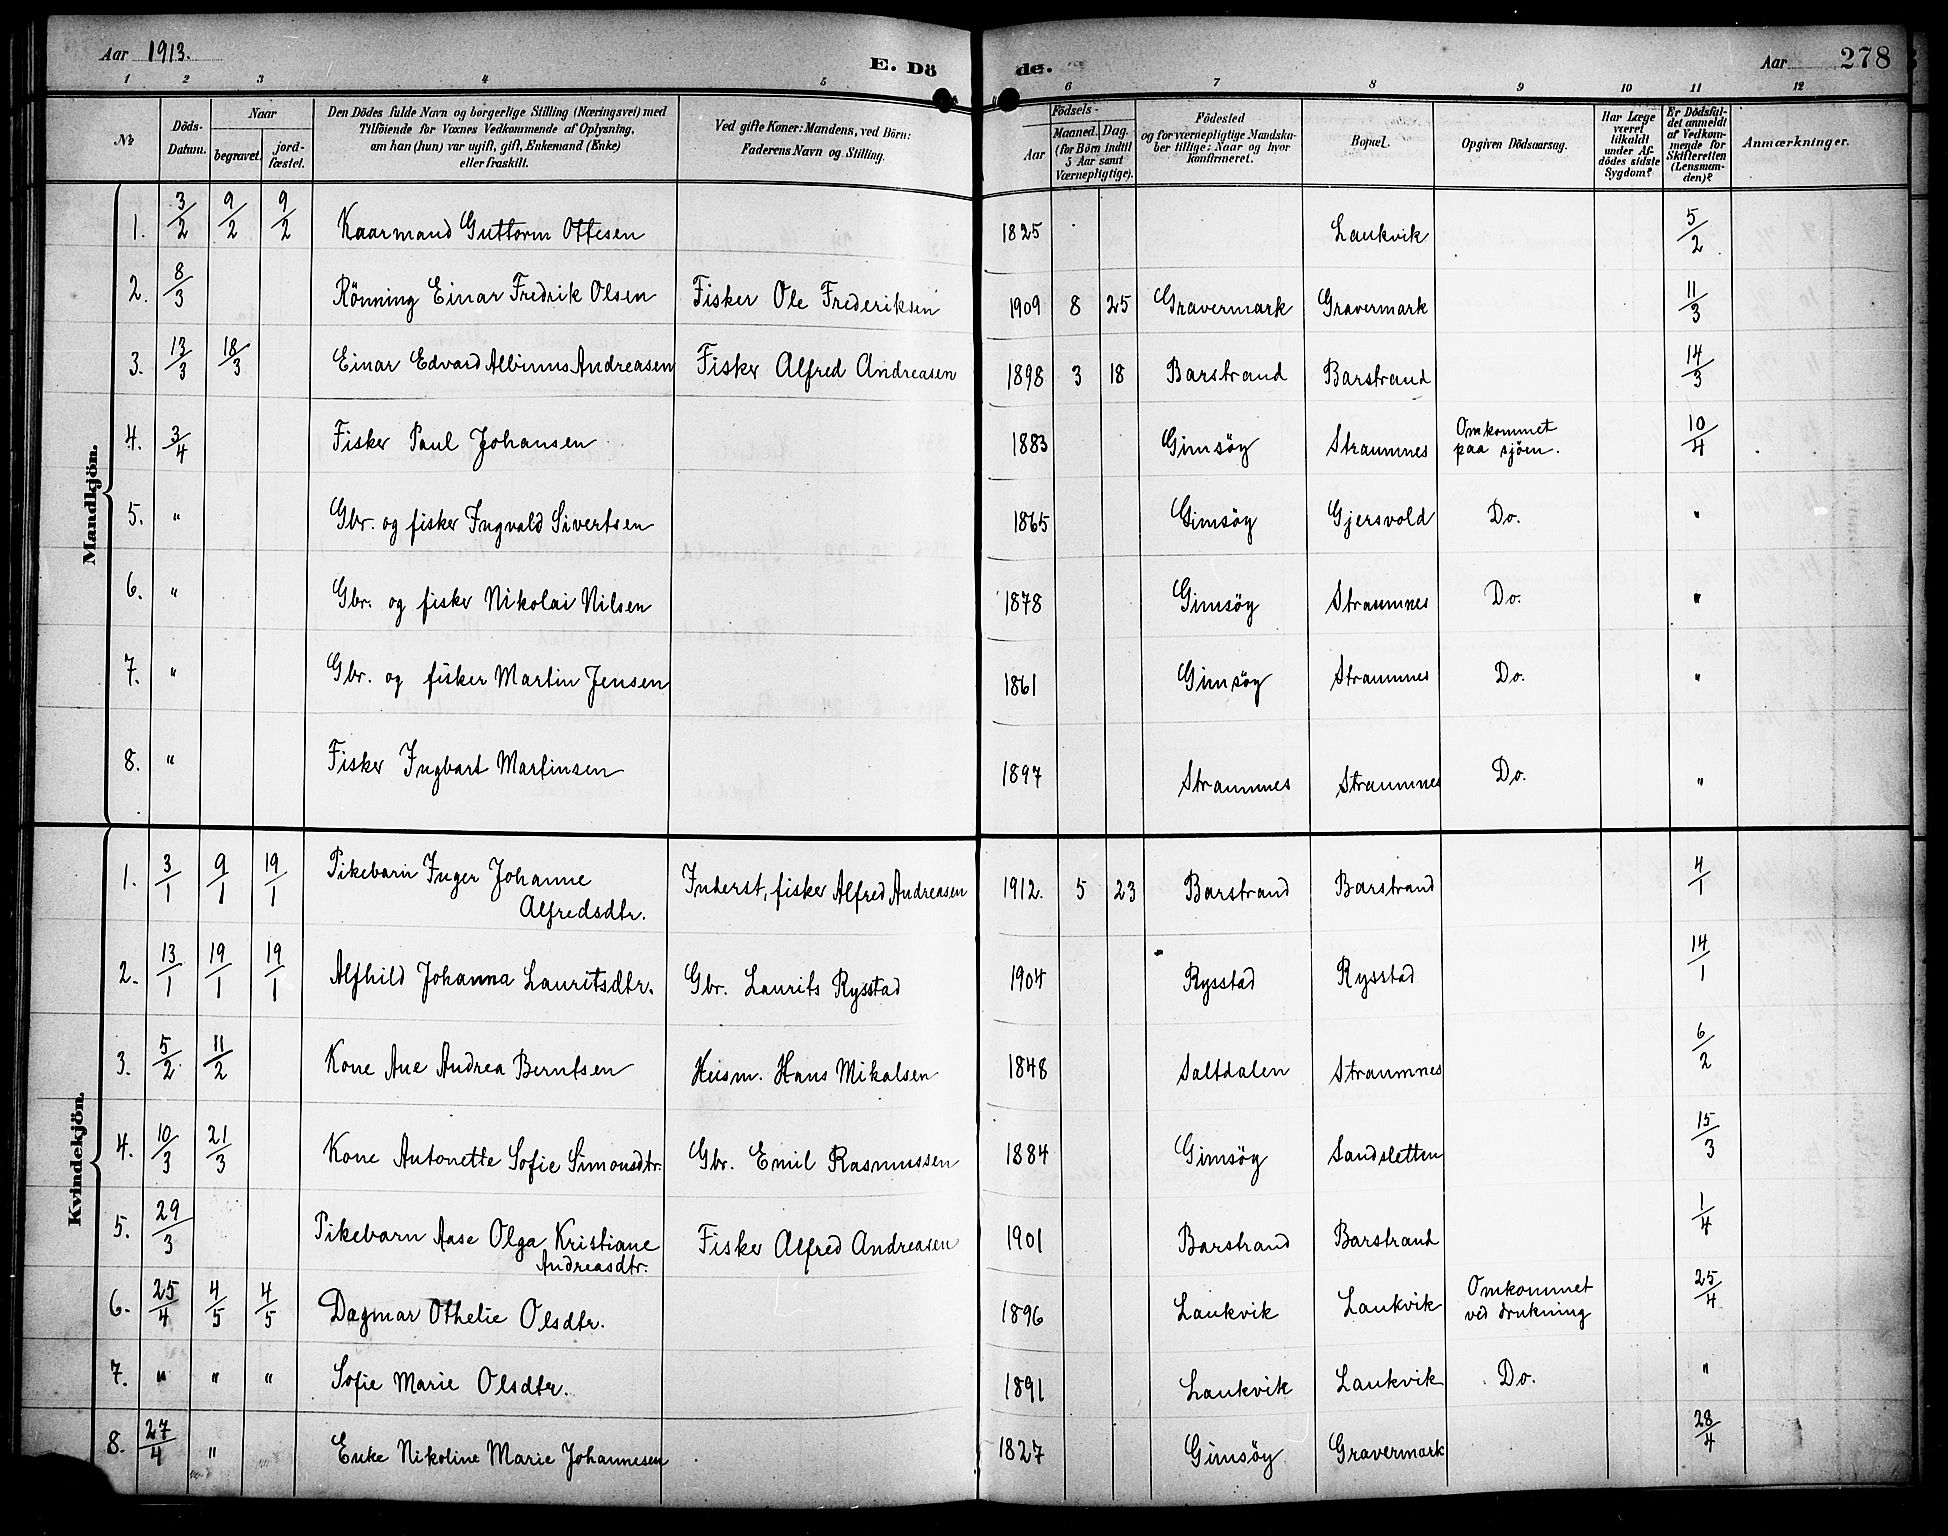 Aar 1913.
E. Dö
de.
Aar
278
1 2 3 4 5 6 7 8 9 10 11 12
№
Döds-Datum.
Naar
begravet.
jord-fæstet.
Den Dödes fulde Navn og borgerlige Stilling (Næringsvei) med
Tilföiende for Voxnes Vedkommende af Oplysning,
om han (hun) var ugift, gift, Enkemand (Enke)
eller fraskilt.
Ved gifte Koner: Mandens, ved Börn:
Faderens Navn og Stilling.
Födsels-
Aar
Maaned. Dag.
(for Börn indtil
5 Aar samt
Værnepligtige).
Födested
og for værnepligtige Mandska-
ber tillige: Naar og hvor
konfirmeret.
Bopæl.
Opgiven Dödsaarsag.
Har Læge
været
tilkaldt
under Af-
dödes sidste
Sygdom?
Er Dödsfal-
det anmeldt
af Vedkom-
mende for
Skifteretten
(Lensman-
den)?
Anmærkninger.
Mandkjön.
1. 3/2 9/2 9/2 Kaarmand Guttorm Ottesen 1825 Laukvik 5/2
2. 8/3 Rönning Einar Fredrik Olsen Fisker Ole Frederiksen 1909 8 25 Gravermark Gravermark 11/3
3. 13/3 18/3 Einar Edvard Albinus Andreasen Fisker Alfred Andreasen 1898 3 18 Barstrand Barstrand 14/3
4. 3/4 Fisker Paul Johansen 1883 Gimsöy Straumnes Omkommet paa sjöen. 10/4
5. " Gbr. og fisker Ingvald Sivertsen 1865 Gimsöy Gjersvold Do. "
6. " Gbr. og fisker Nikolai Nilsen 1878 Gimsöy Straumnes Do. "
7. " Gbr. og fisker Martin Jensen 1861 Gimsöy Straumnes Do. "
8. " Fisker Ingbart Martinsen 1897 Straumnes Straumnes Do. "
Kvindekjön.
1. 3/1 9/1 19/1 Pikebarn Inger Johanne Alfredsdtr. Inderst, fisker Alfred Andreasen 1912. 5 23 Barstrand Barstrand 4/1
2. 13/1 19/1 19/1 Alfhild Johanna Lauritsdtr. Gbr. Laurits Rysstad 1904 Rysstad Rysstad 14/1
3. 5/2 11/2 Kone Ane Andrea Berntsen Husm. Hans Mikalsen 1848 Saltdalen Straumnes 6/2
4. 10/3 21/3 Kone Antonette Sofie Simonsdtr. Gbr. Emil Rasmussen 1884 Gimsöy Sandsletten 15/3
5. 29/3 Pikebarn Aase Olga Kristiane Andreasdtr. Fisker Alfred Andreasen 1901 Barstrand Barstrand 1/4
6. 25/4 4/5 4/5 Dagmar Othelie Olsdtr. 1896 Laukvik Laukvik Omkommet ved drukning 25/4
7. " " " Sofie Marie Olsdtr. 1891 Laukvik Laukvik Do. "
8. 27/4 " Enke Nikoline Marie Johannesen 1827 Gimsöy Gravermark 28/4